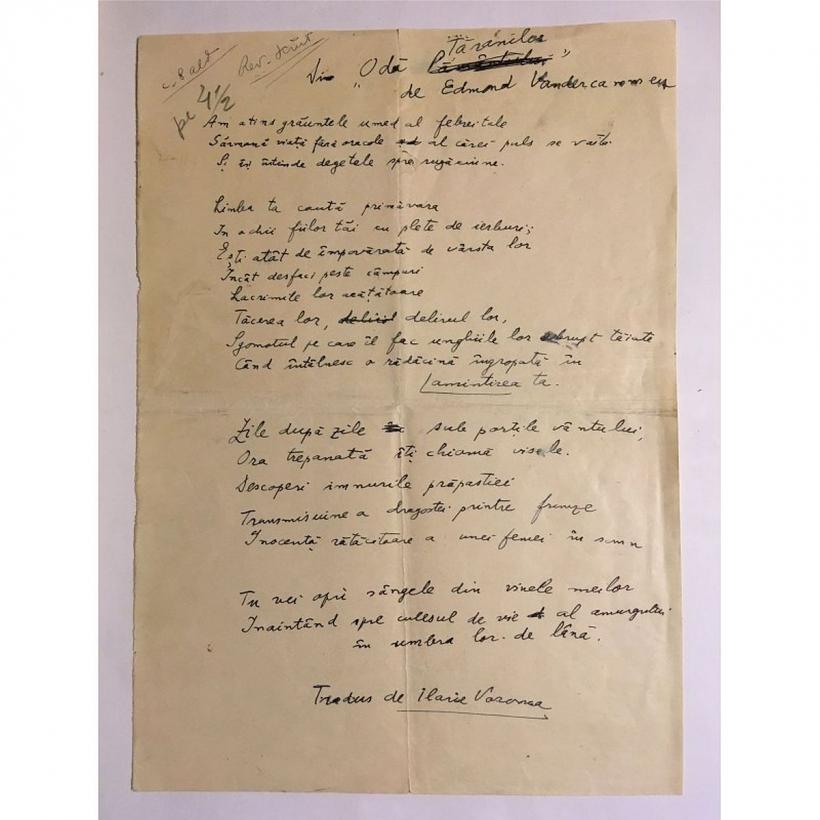 8 ald
Rev. scurt
pe 4 1/2
Din "Odă Țăranilor"
de Edmond Vandercammen
Am atins grăuntele umed al febrei tale
Sărmană viață fără oracole al cărei puls se vaită
Și își întinde degetele spre rugăciune.
Limba ta caută primăvara
In ochii fiilor tăi cu plete de ierburi;
Ești atât de împovărată de vârsta lor
Încât desfaci peste câmpuri
Lacrimile lor
Tăcerea lor, delirul lor,
Sgomotul pe care îl fac unghiile lor abrupt tăiate
Când întâlnesc o rădăcină îngropată în
amintirea ta.
Zile după zile sub porțile vântului,
Ora trepanată îți chiamă visele.
Descoperi imnurile prăpastiei
Transmisiune a dragostei printre frunze
Inocență rătăcitoare a unei femei în somn
Tu vei opri sângele din vinele meilor
Inaintând spre culesul de vie al amurgului
în umbra lor de lână.
Tradus de Ilarie Voronca